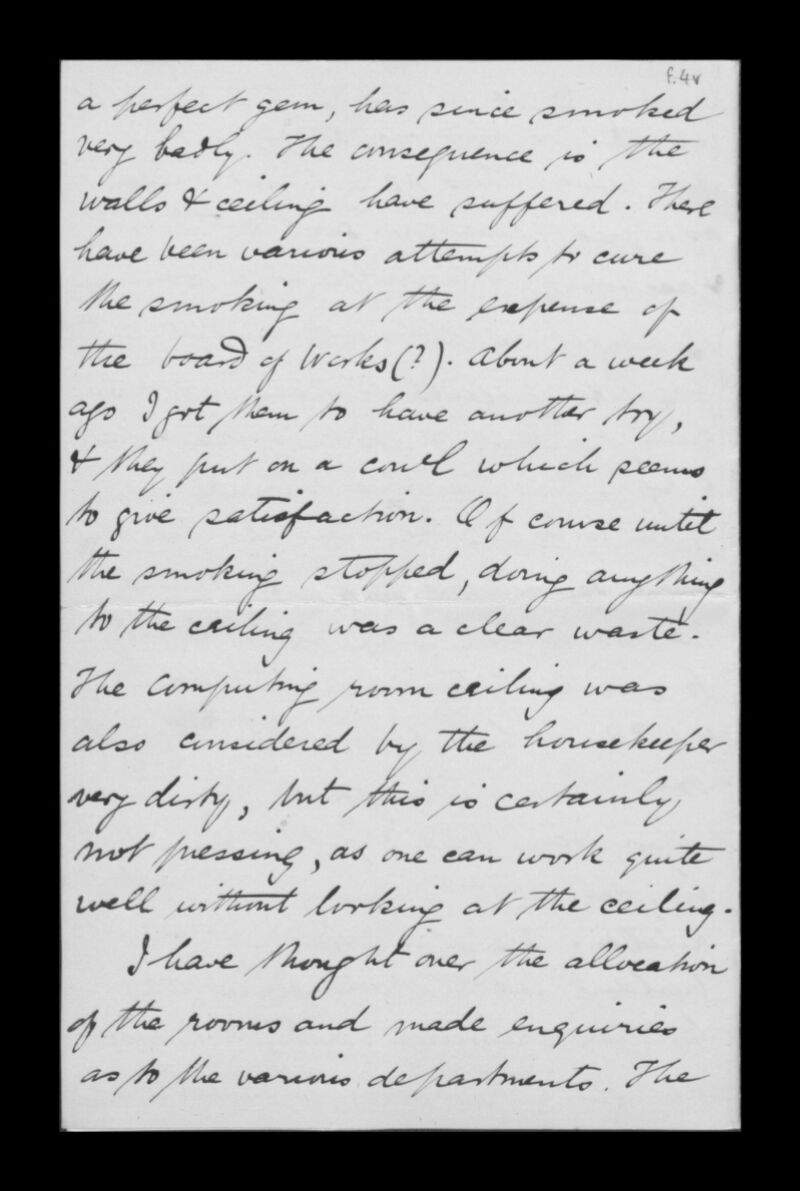 f.4v
a perfect gem, has since smoked
very badly. The consequence is the
walls & ceiling have suffered. There
have been various attempts to cure
the smoking at the expense of
the board of Works(?). About a week
ago I got them to have another try,
& they put on a cowl which seems
to give satisfaction. Of course until
the smoking stopped, doing anything
to the ceiling was a clear waste.
The Computing room ceiling was
also considered by the housekeeper
very dirty, but this is certainly
not pressing, as one can work quite
well without looking at the ceiling.
I have thought over the allocation
of the rooms and made enquiries
as to the various departments. The